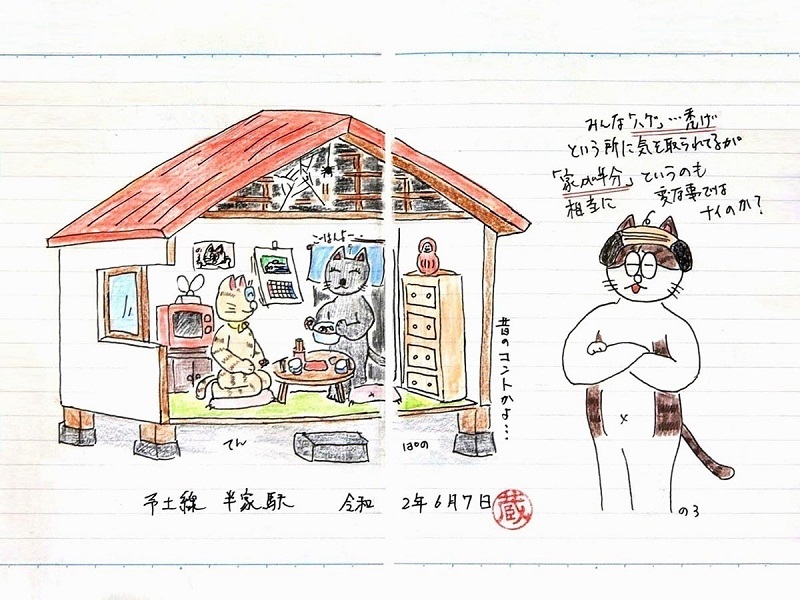 みんな「ハゲ」…禿げ
という所に気を取られてるが。
「家が半分」というのも
相当に
変な事では
ナイのか？
ごはんよー
昔のコントかよ…
てん
ぽの
のろ
予土線 半家駅 令和 2年6月7日
蔵